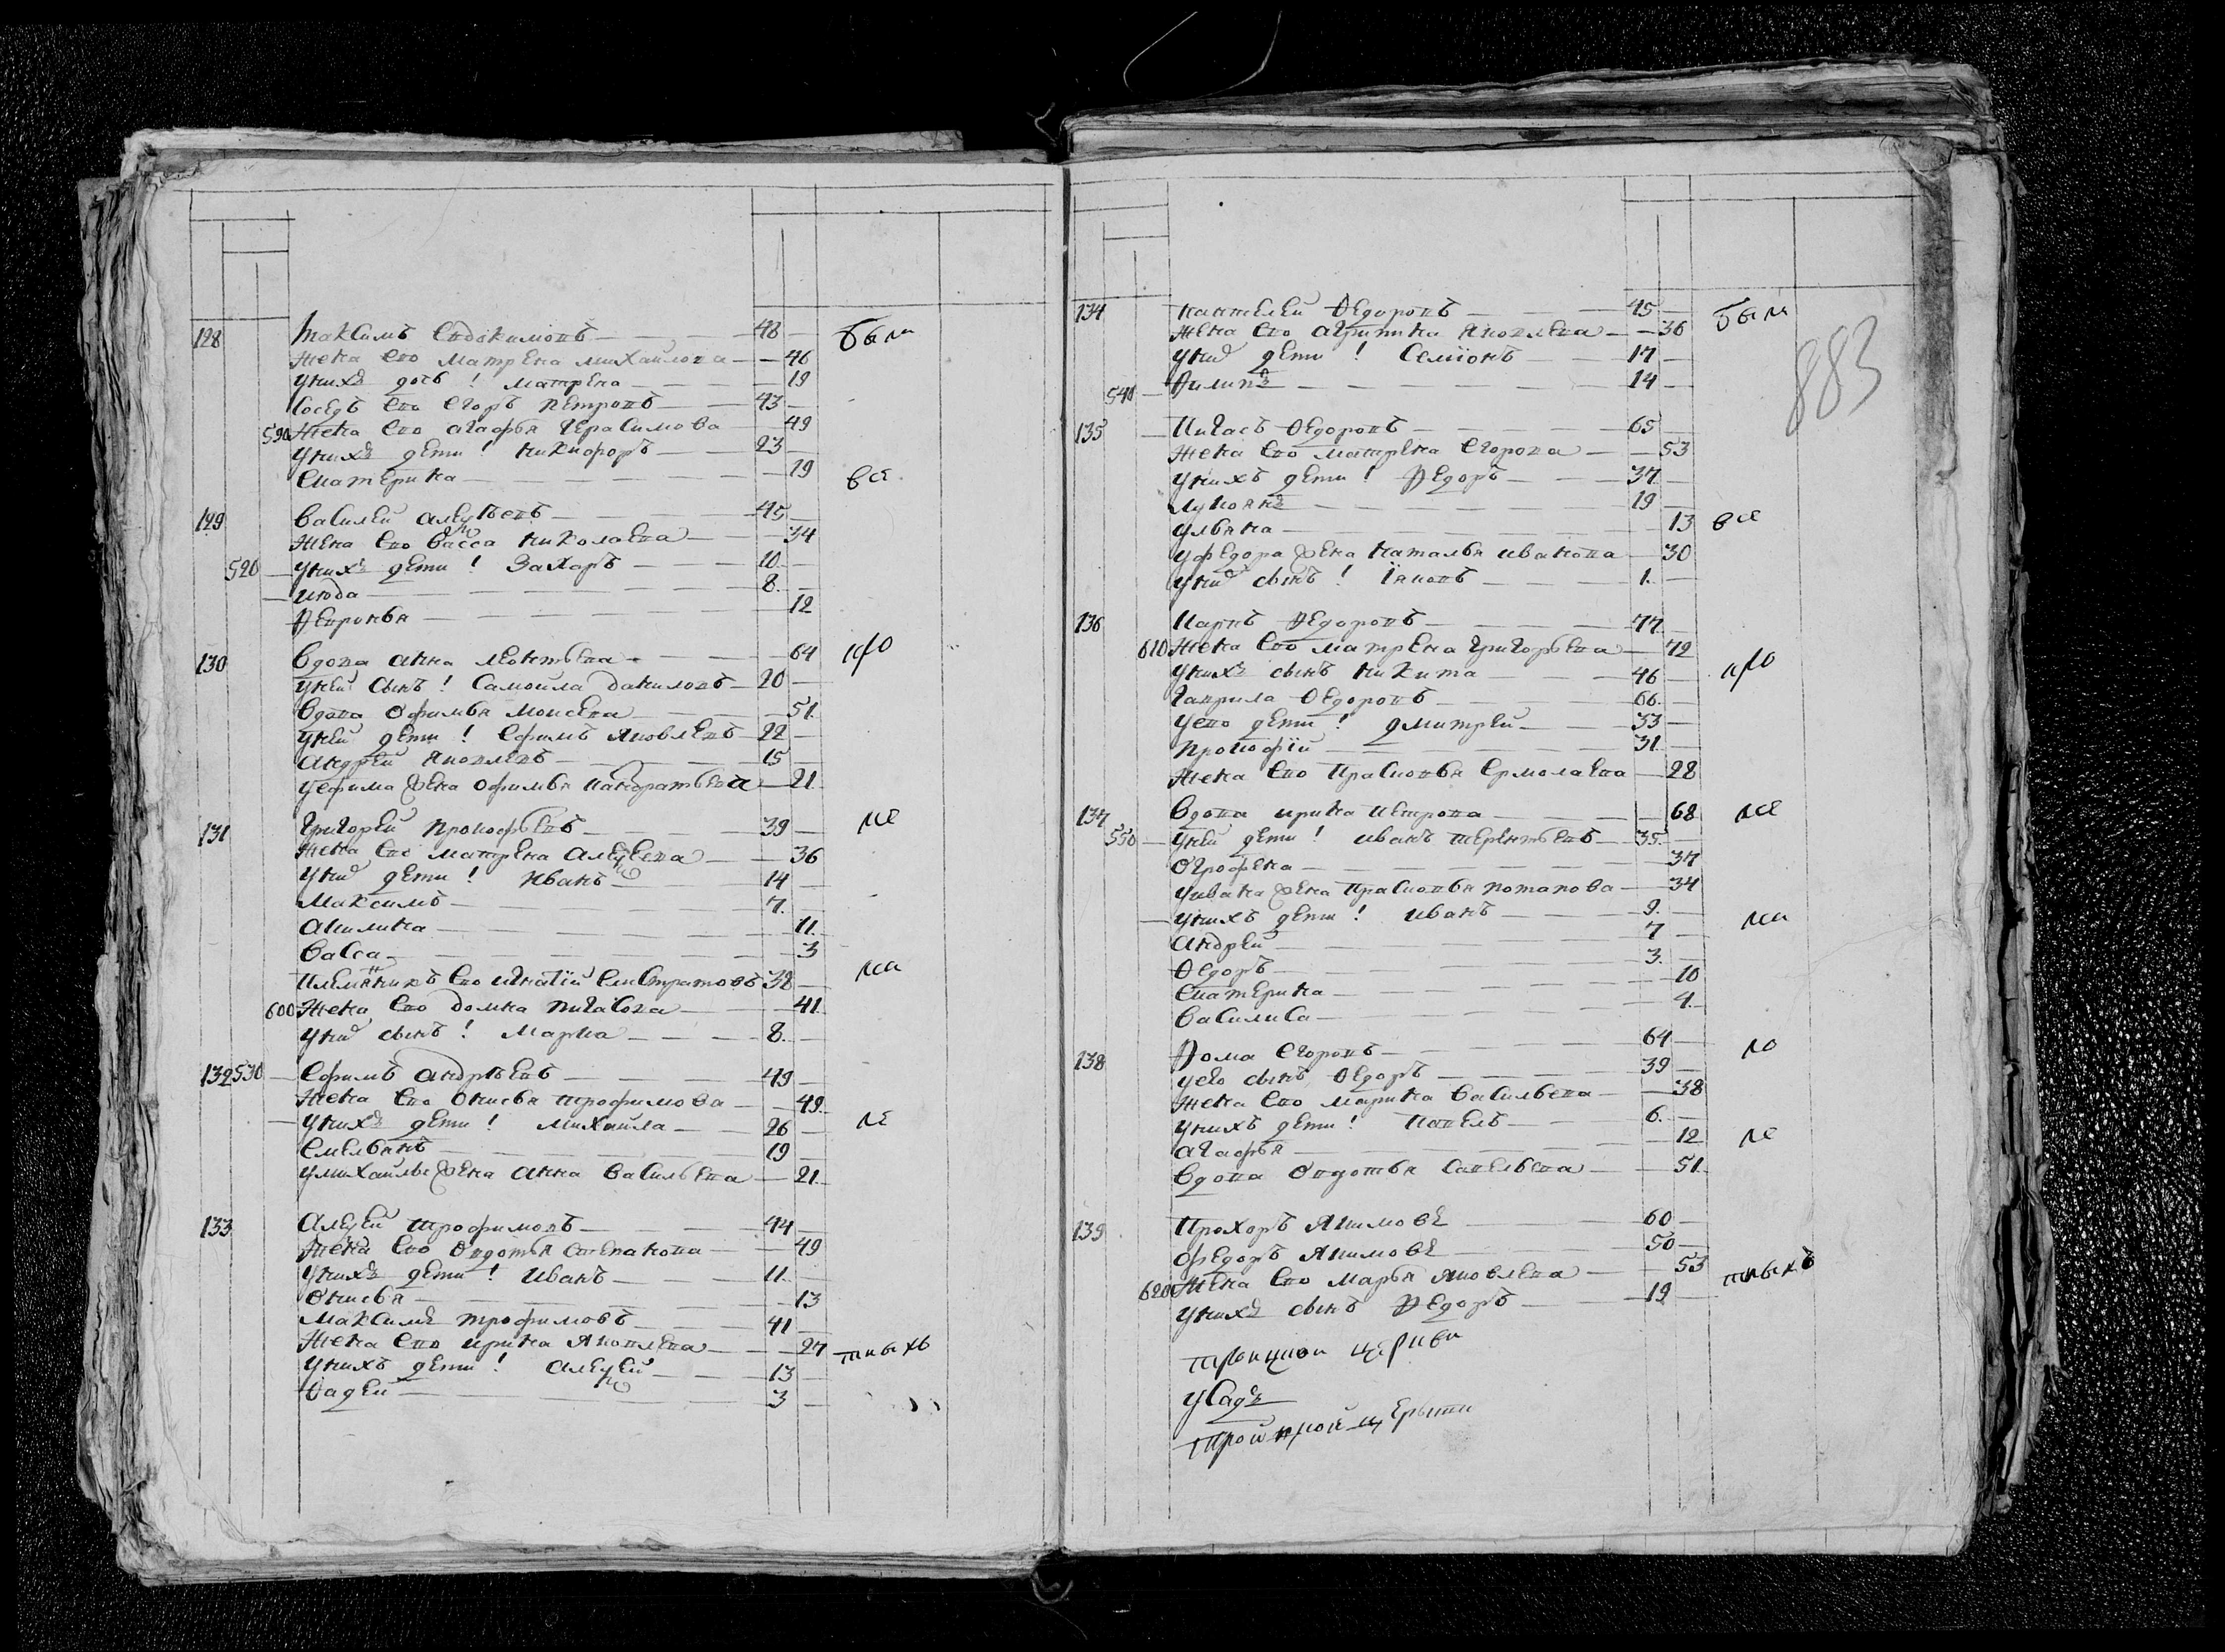 128 Максимъ Евдокимовъ 48
Жена его Матрена Михайлова 46
у нихъ дочь ! Матрена 19
Соседъ его Егоръ Петровъ 43
590 Жена его Агафья Герасимова 49
у нихъ дети ! Никифоръ 23
Екатерина 19
129 Василей Алексѣевъ 45
Жена его Васса Николаева 34
520 у нихъ дети ! Захаръ 10
Июда 8
Февронья 12
130 Вдова Анна Леонтьева 64
у ней сынъ ! Самоила Даниловъ 20
Вдова Офимья Моисева 51
у ней дети ! Ефимъ Яковлевъ 22
Андрей Яковлевъ 15
у Ефима жена Офимья Панкратьева 21
131 Григорей Прокофьевъ 39
Жена его Матрена Алексеева 36
у них дети ! Иванъ 14
Максимъ 7
Акилина 11
Васса 3
Племянникъ его Игнатїй Елистратовъ 32
600 Жена его Домна Пигасова 41
у них сынъ ! Марка 8
132 530 Ефимъ Андрѣевъ 49
Жена его Онисья Трофимова 49
у нихъ дети ! Михаила 26
Емельянъ 19
у Михаилы жена Анна Васильева 21
133 Алексей Трофимовъ 44
Жена его Овдотья Степанова 49
у нихъ дети ! Иванъ 11
Онисья 13
Максимъ Трофимовъ 41
Жена его Ирина Яковлева 27
у нихъ дети ! Алексей 13
Фадей 3
были
все
про
ле
ни
ле
ныхъ
883
134 Пантелей Федоровъ 45
Жена его Агрипина Яковлева 36
у них дети ! Семїонъ 17
540 Филипъ 14
135 Пигасъ Федоровъ 65
Жена его Матрена Егорова 53
у нихъ дети ! Федоръ 37
Лукоянъ 19
Ульяна 13
у Федора жена Наталья Иванова 30
у них сынъ ! Їяковъ 1
136 Карпъ Федоровъ 77
610 Жена его Матрена Григорьева 72
у нихъ сынъ Никита 46
Гаврила Федоровъ 66
у ево дети ! Дмитрей 33
Прокофїй 31
Жена его Прасковья Ермолаева 28
137 Вдова Ирина Петрова 68
550 у ней дети ! Иванъ Терентьевъ 35
Огрофена 37
у Ивана жена Прасковья Потапова 34
у нихъ дети ! Иванъ 9
Андрей 7
Федоръ 3
Екатерина 10
Василиса 4
138 Фома Егоровъ 64
у его сынъ Федоръ 39
Жена его Марина Васильева 38
у нихъ дети ! Павелъ 6
Агафья 12
Вдова Овдотья Савельева 51
139 Прохоръ Якимовъ 60
Федоръ Якимовъ 50
620 Жена его Марья Яковлева 53
у нихъ сынъ Федоръ 19
были
все
про
ле
ни
ло
ле
ныхъ
троицкои церкви